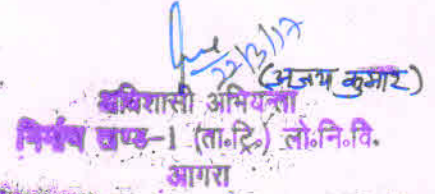 22/3/17
(अजय कुमार)
अधिशासी अभियन्ता
निर्माण खण्ड-1 (ता॰ट्रि॰) लो॰नि॰वि॰
आगरा